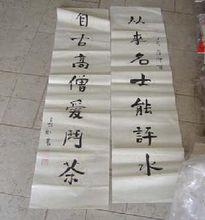 从来名士能評水
自古高僧爱鬥茶